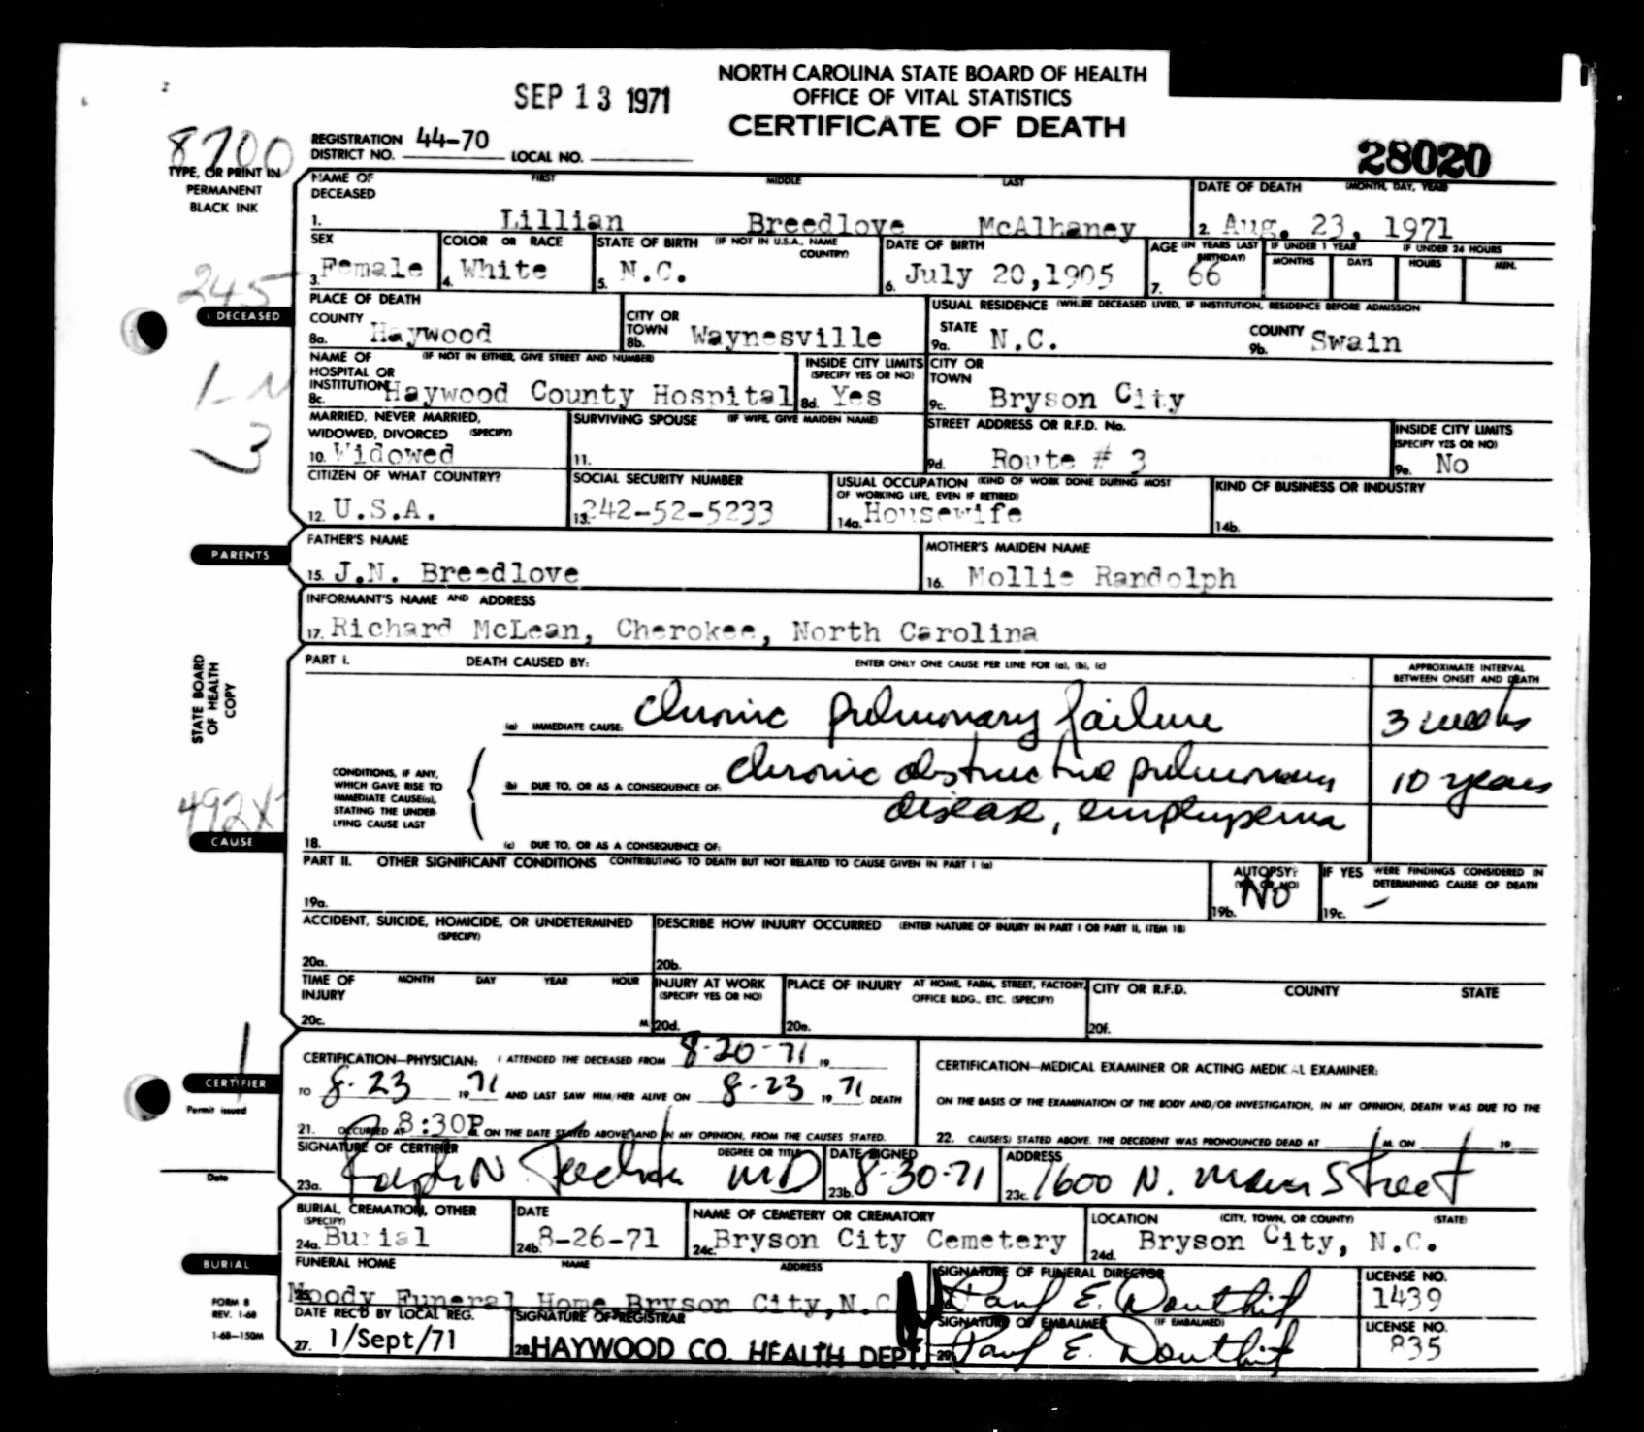 NORTH CAROLINA STATE BOARD OF HEALTH
SEP 13 1971
OFFICE OF VITAL STATISTICS
CERTIFICATE OF DEATH
8700
REGISTRATION DISTRICT NO. 44-70 LOCAL NO.
28020
TYPE, OR PRINT IN PERMANENT BLACK INK
NAME OF DECEASED FIRST MIDDLE LAST
1. Lillian Breedlove McAlhaney
DATE OF DEATH (MONTH, DAY, YEAR)
2. Aug. 23, 1971
SEX
3. Female
COLOR OR RACE
4. White
STATE OF BIRTH (IF NOT IN U.S.A., NAME COUNTRY)
5. N.C.
DATE OF BIRTH
6. July 20,1905
AGE (IN YEARS LAST BIRTHDAY)
7. 66
IF UNDER 1 YEAR
MONTHS DAYS
IF UNDER 24 HOURS
HOURS MIN.
245
DECEASED
PLACE OF DEATH
COUNTY
8a. Haywood
CITY OR TOWN
8b. Waynesville
USUAL RESIDENCE (WHERE DECEASED LIVED, IF INSTITUTION, RESIDENCE BEFORE ADMISSION
STATE
9a. N.C.
COUNTY
9b. Swain
NAME OF HOSPITAL OR INSTITUTION (IF NOT IN EITHER, GIVE STREET AND NUMBER)
8c. Haywood County Hospital
INSIDE CITY LIMITS (SPECIFY YES OR NO)
8d. Yes
CITY OR TOWN
9c. Bryson City
3
MARRIED, NEVER MARRIED, WIDOWED, DIVORCED (SPECIFY)
10. Widowed
SURVIVING SPOUSE (IF WIFE, GIVE MAIDEN NAME)
11.
STREET ADDRESS OR R.F.D. No.
9d. Route # 3
INSIDE CITY LIMITS (SPECIFY YES OR NO)
9e. No
CITIZEN OF WHAT COUNTRY?
12. U.S.A.
SOCIAL SECURITY NUMBER
13. 242-52-5233
USUAL OCCUPATION (KIND OF WORK DONE DURING MOST OF WORKING LIFE, EVEN IF RETIRED)
14a. Housewife
KIND OF BUSINESS OR INDUSTRY
14b.
PARENTS
FATHER'S NAME
15. J.N. Breedlove
MOTHER'S MAIDEN NAME
16. Mollie Randolph
INFORMANT'S NAME AND ADDRESS
17. Richard McLean, Cherokee, North Carolina
STATE BOARD OF HEALTH COPY
PART I. DEATH CAUSED BY: ENTER ONLY ONE CAUSE PER LINE FOR (a), (b), (c)
APPROXIMATE INTERVAL BETWEEN ONSET AND DEATH
(a) IMMEDIATE CAUSE: chronic pulmonary failure 3 weeks
CONDITIONS, IF ANY, WHICH GAVE RISE TO IMMEDIATE CAUSE(a), STATING THE UNDER LYING CAUSE LAST
(b) DUE TO, OR AS A CONSEQUENCE OF: chronic obstructive pulmonary 10 years
disease, emphysema
492X
CAUSE
18. (c) DUE TO, OR AS A CONSEQUENCE OF:
PART II. OTHER SIGNIFICANT CONDITIONS CONTRIBUTING TO DEATH BUT NOT RELATED TO CAUSE GIVEN IN PART I (a)
19a.
AUTOPSY? (YES OR NO)
19b. No
IF YES WERE FINDINGS CONSIDERED IN DETERMINING CAUSE OF DEATH
19c. –
ACCIDENT, SUICIDE, HOMICIDE, OR UNDETERMINED (SPECIFY)
20a.
DESCRIBE HOW INJURY OCCURRED (ENTER NATURE OF INJURY IN PART I OR PART II, ITEM 18)
20b.
TIME OF INJURY MONTH DAY YEAR HOUR
20c. M.
INJURY AT WORK (SPECIFY YES OR NO)
20d.
PLACE OF INJURY AT HOME, FARM, STREET, FACTORY, OFFICE BLDG., ETC. (SPECIFY)
20e.
CITY OR R.F.D. COUNTY STATE
20f.
CERTIFIER
Permit issued
Date
CERTIFICATION—PHYSICIAN: I ATTENDED THE DECEASED FROM 8-20-71 19
TO 8-23 19 71 AND LAST SAW HIM/HER ALIVE ON 8-23 19 71 DEATH
21. OCCURRED AT 8:30P M. ON THE DATE STATED ABOVE AND IN MY OPINION, FROM THE CAUSES STATED.
CERTIFICATION—MEDICAL EXAMINER OR ACTING MEDICAL EXAMINER:
ON THE BASIS OF THE EXAMINATION OF THE BODY AND/OR INVESTIGATION, IN MY OPINION, DEATH WAS DUE TO THE
22. CAUSE(S) STATED ABOVE. THE DECEDENT WAS PRONOUNCED DEAD AT M. ON 19
SIGNATURE OF CERTIFIER DEGREE OR TITLE
23a. Ralph N. MD
DATE SIGNED
23b. 8-30-71
ADDRESS
23c. 1600 N. Main Street
BURIAL, CREMATION, OTHER (SPECIFY)
24a. Burial
DATE
24b. 8-26-71
NAME OF CEMETERY OR CREMATORY
24c. Bryson City Cemetery
LOCATION (CITY, TOWN, OR COUNTY) (STATE)
24d. Bryson City, N.C.
BURIAL
FUNERAL HOME NAME ADDRESS
25. Moody Funeral Home Bryson City, N.C.
SIGNATURE OF FUNERAL DIRECTOR
Paul E. Douthit
LICENSE NO.
1439
FORM 8
REV. 1-68
1-68—150M
DATE REC'D BY LOCAL REG.
27. 1/Sept/71
SIGNATURE OF REGISTRAR
28. HAYWOOD CO. HEALTH DEPT.
SIGNATURE OF EMBALMER (IF EMBALMED)
29. Paul E. Douthit
LICENSE NO.
835